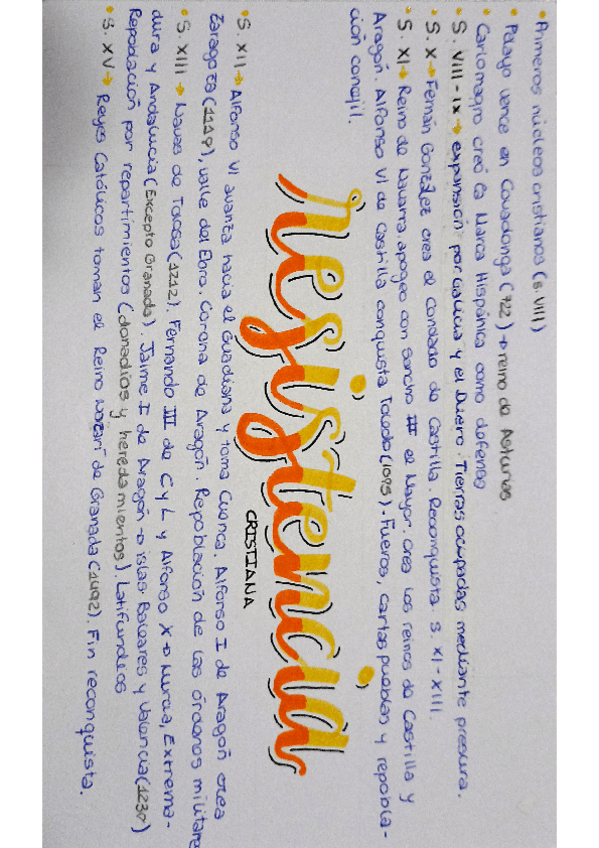 • Primeros núcleos cristianos (s. VIII)
• Pelayo vence en Covadonga (722) → reino de Asturias
• Carlomagno creó la Marca Hispánica como defensa
• S. VIII - IX → expansión por Galicia y el Duero. Tierras ocupadas mediante presura.
• S. X → Fernán González crea el Condado de Castilla. Reconquista s. XI - XIII.
• S. XI → Reino de Navarra, apogeo con Sancho III el Mayor, crea los reinos de Castilla y
Aragón. Alfonso VI de Castilla conquista Toledo (1095). Fueros, cartas pueblas y repobla-
ción concejil.
resistencia
CRISTIANA
• S. XII → Alfonso VI avanza hacia el Guadiana y toma Cuenca. Alfonso I de Aragón crea
Zaragoza (1118), valle del Ebro. Corona de Aragón. Repoblación de las órdenes militares
• S. XIII → Navas de Tolosa (1212). Fernando III de C y L y Alfonso X → Murcia, Extrema-
dura y Andalucía (Excepto Granada). Jaime I de Aragón → islas Baleares y Valencia (1230)
Repoblación por repartimientos (donadíos y heredamientos) Latifundios
• S. XV → Reyes Católicos toman el Reino Nazarí de Granada (1492). Fin reconquista.